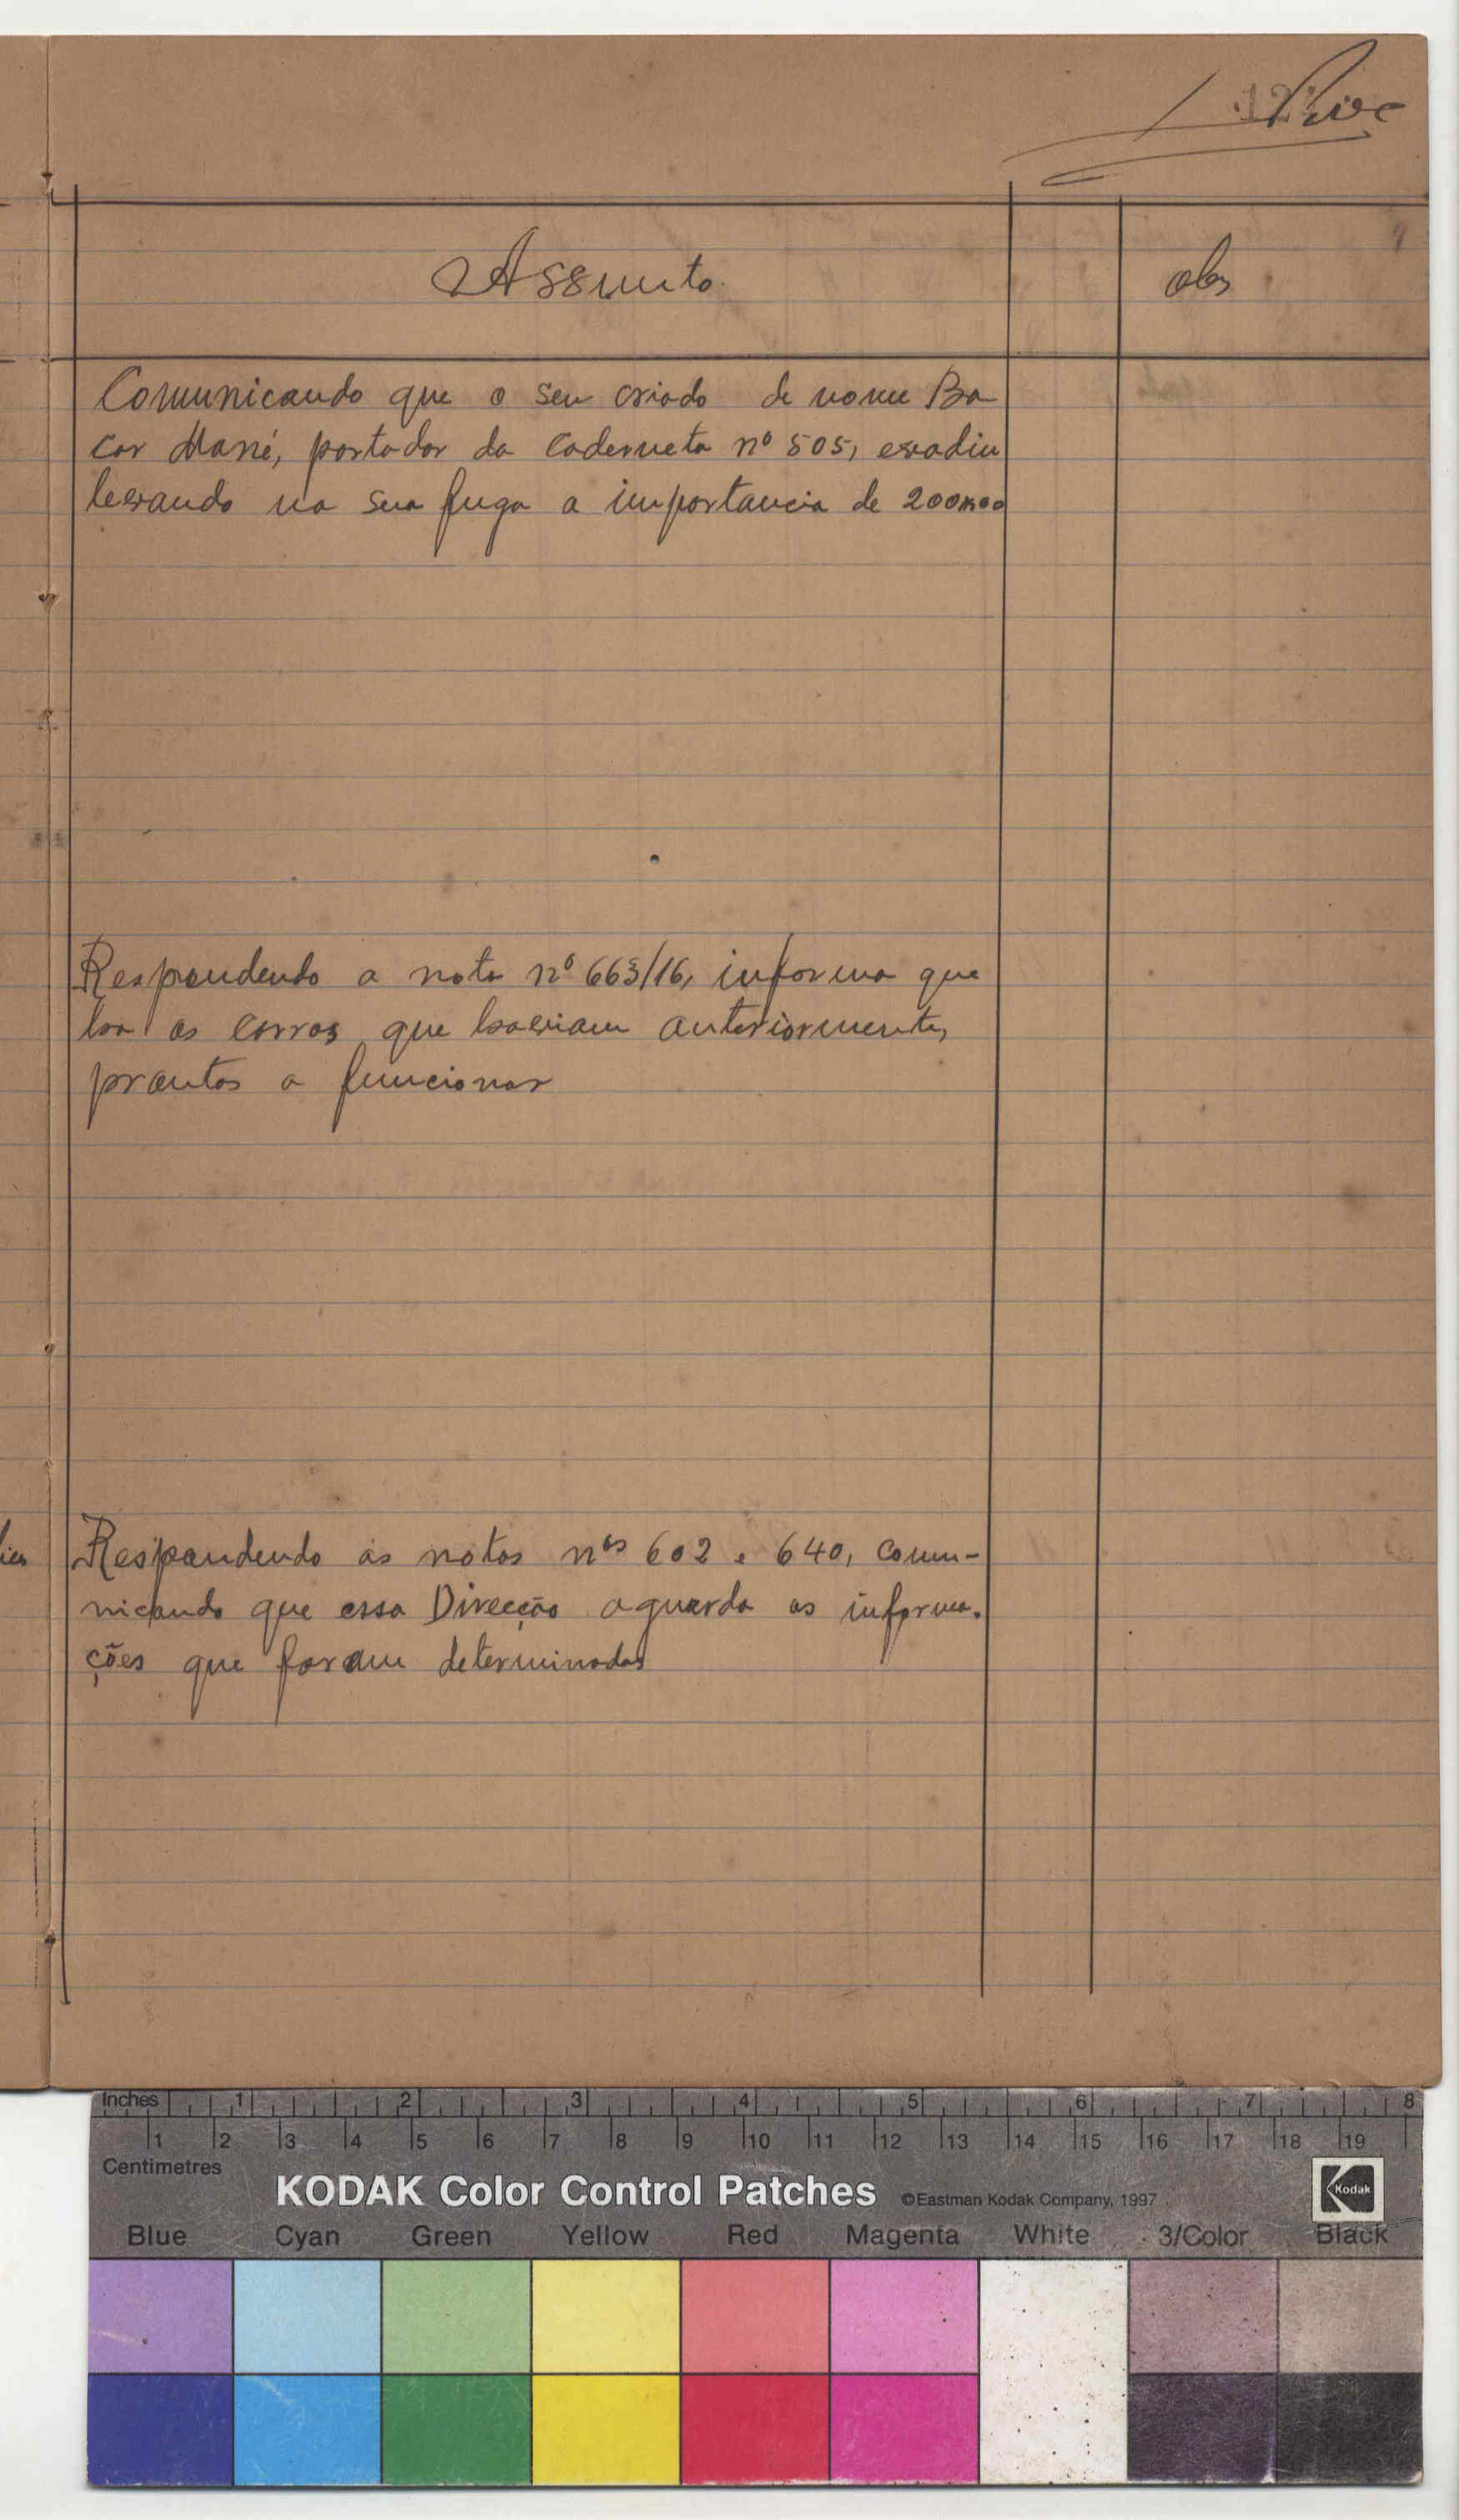 12
Assunto.
obs
Comunicando que o seu criado de nome Ba
car Mané, portador da caderneta nº 505, evadiu
levando na sua fuga a importancia de 200$00
Respondendo a nota nº 663/16, informa que
ha os carros que haviam anteriormente,
prontos a funcionar
Respondendo ás notas nºs 602 e 640, comu-
nicando que essa Direcção aguarda as informa-
ções que foram determinadas
Inches 1 2 3 4 5 6 7 8
1 2 3 4 5 6 7 8 9 10 11 12 13 14 15 16 17 18 19
Centimetres
KODAK Color Control Patches ©Eastman Kodak Company, 1997 Kodak
Blue Cyan Green Yellow Red Magenta White 3/Color Black